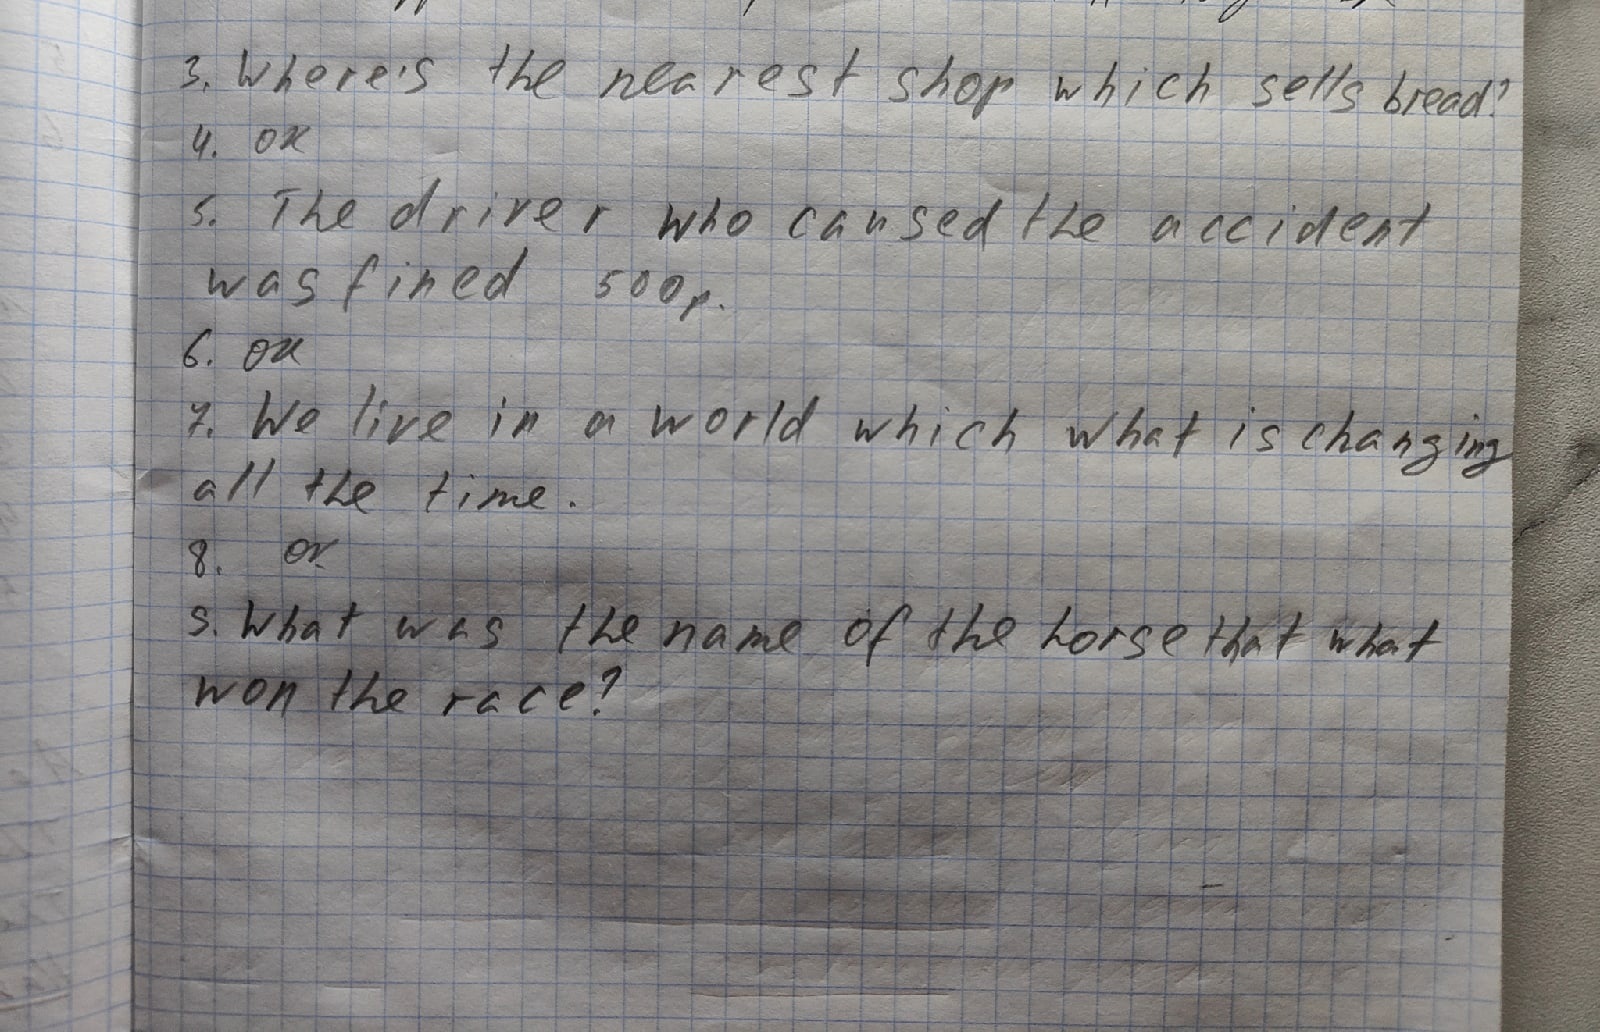 3. Where's the nearest shop which sells bread?
4. ок
5. The driver who caused the accident
was fined 500р.
6. ок
7. We live in a world which what is changing
all the time.
8. ок
9. What was the name of the horse that what
won the race?